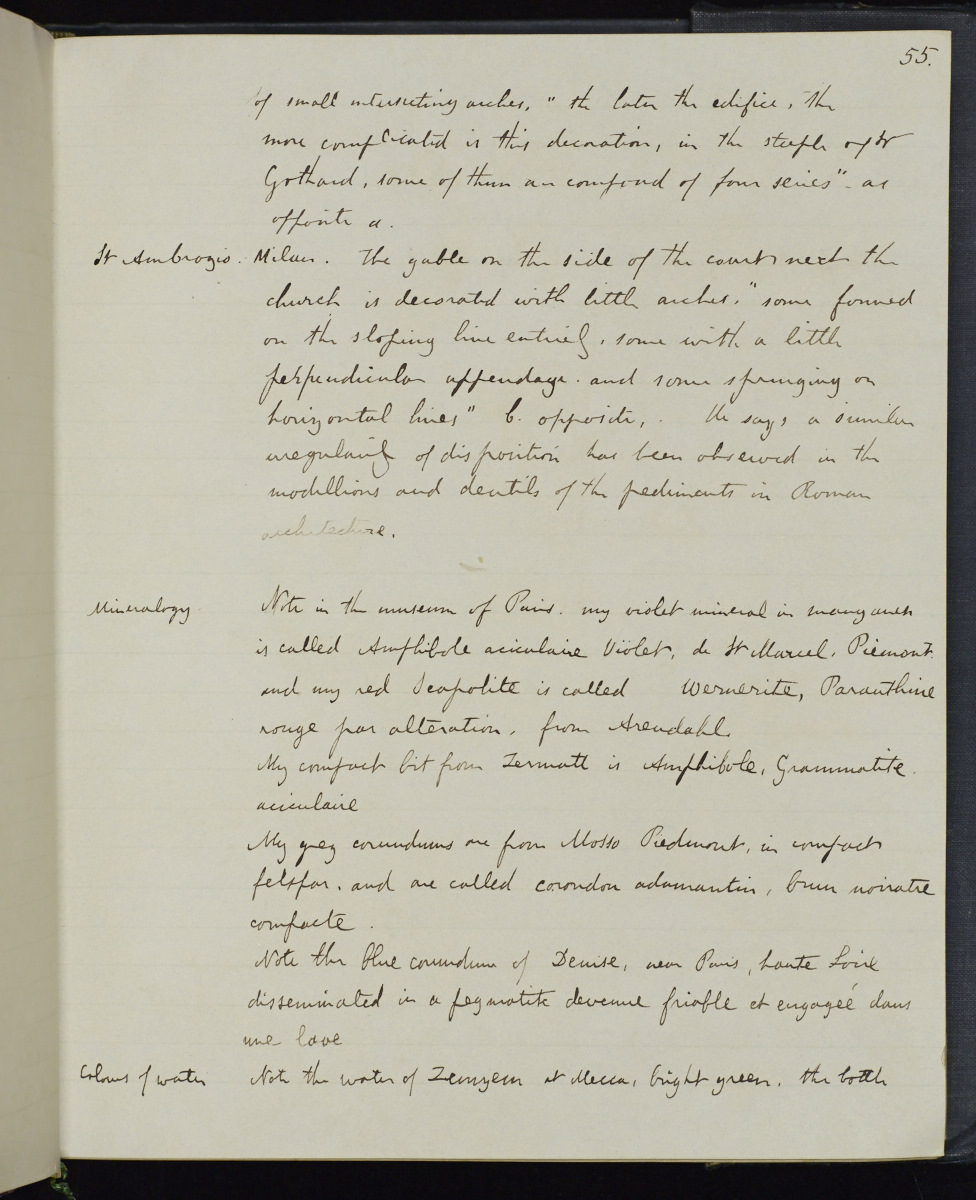 55.
of small intersecting arches. "the later the edifice, the
more complicated is this decoration, in the steeple of St
Gothard, some of them are compound of four series" - as
opposite a.
St Ambrogio. Milan. The gable on the side of the court next the
church is decorated with little arches. "some formed
on the sloping line entirely, some with a little
perpendicular appendage. and some springing on
horizontal lines" b. opposite,. He says a similar
irregularity of disposition has been observed in the
modillions and dentils of the pediments in Roman
architecture.
Mineralogy Note in the museum of Paris. my violet mineral in manganese
is called Amphibole aciculaire Violet, de St Marcel, Piemont.
and my red Scapolite is called Wernerite, Paranthine
rouge par alteration, from Arendahl.
My compact bit from Zermatt is Amphibole, Grammatite.
aciculaire
My grey corundums are from Mosso Piedmont, in compact
felspar. and are called corondon adamantin, brun noiratre
compacte.
Note the blue corundum of Denise, near Puis, haute Loire
disseminated in a pegmatite devenue friable et engageé dans
une lave
Colours of water Note the water of Zemzem at Mecca, bright green. the bottle